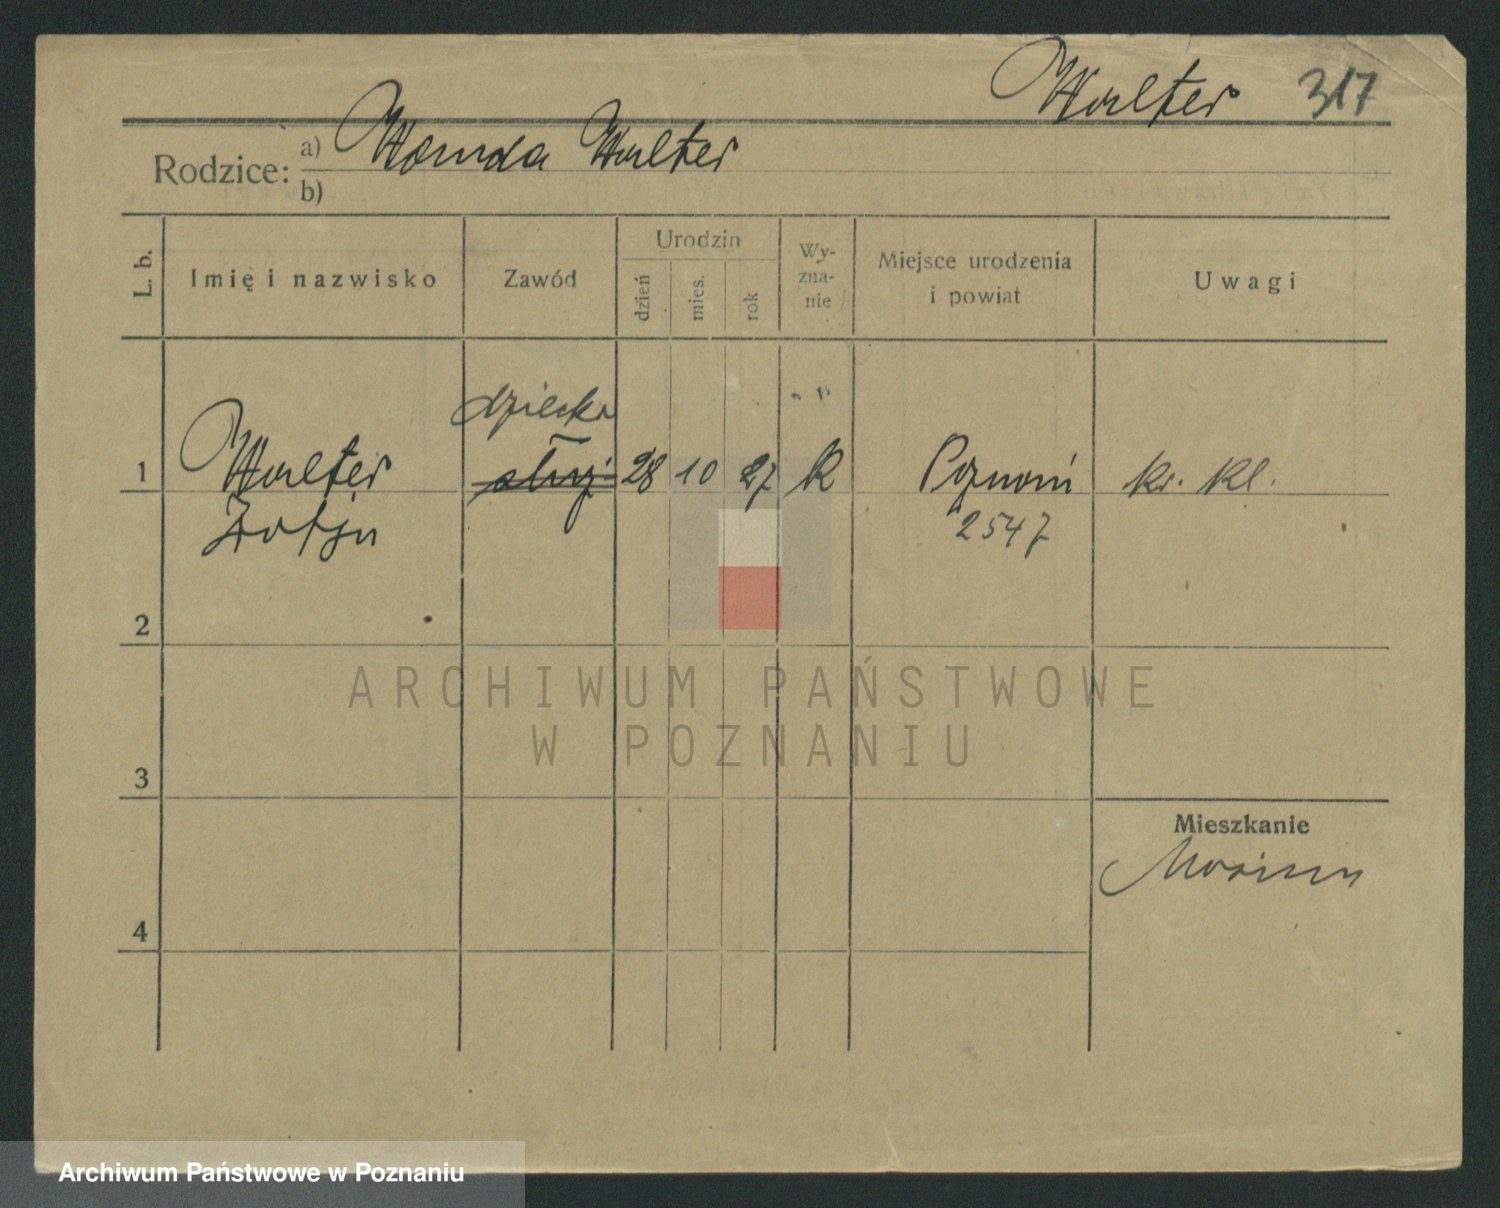 Walter 317
Rodzice: a) Wanda Walter
b)
L. b. Imię i nazwisko Zawód Urodzin dzień mies. rok Wy-zna-nie Miejsce urodzenia i powiat Uwagi
dziecko
1 Walter służ. 28 10 27 k Poznań kr. kl.
Zofja 2547
2
ARCHIWUM PAŃSTWOWE
W POZNANIU
3
Mieszkanie
4
Archiwum Państwowe w Poznaniu